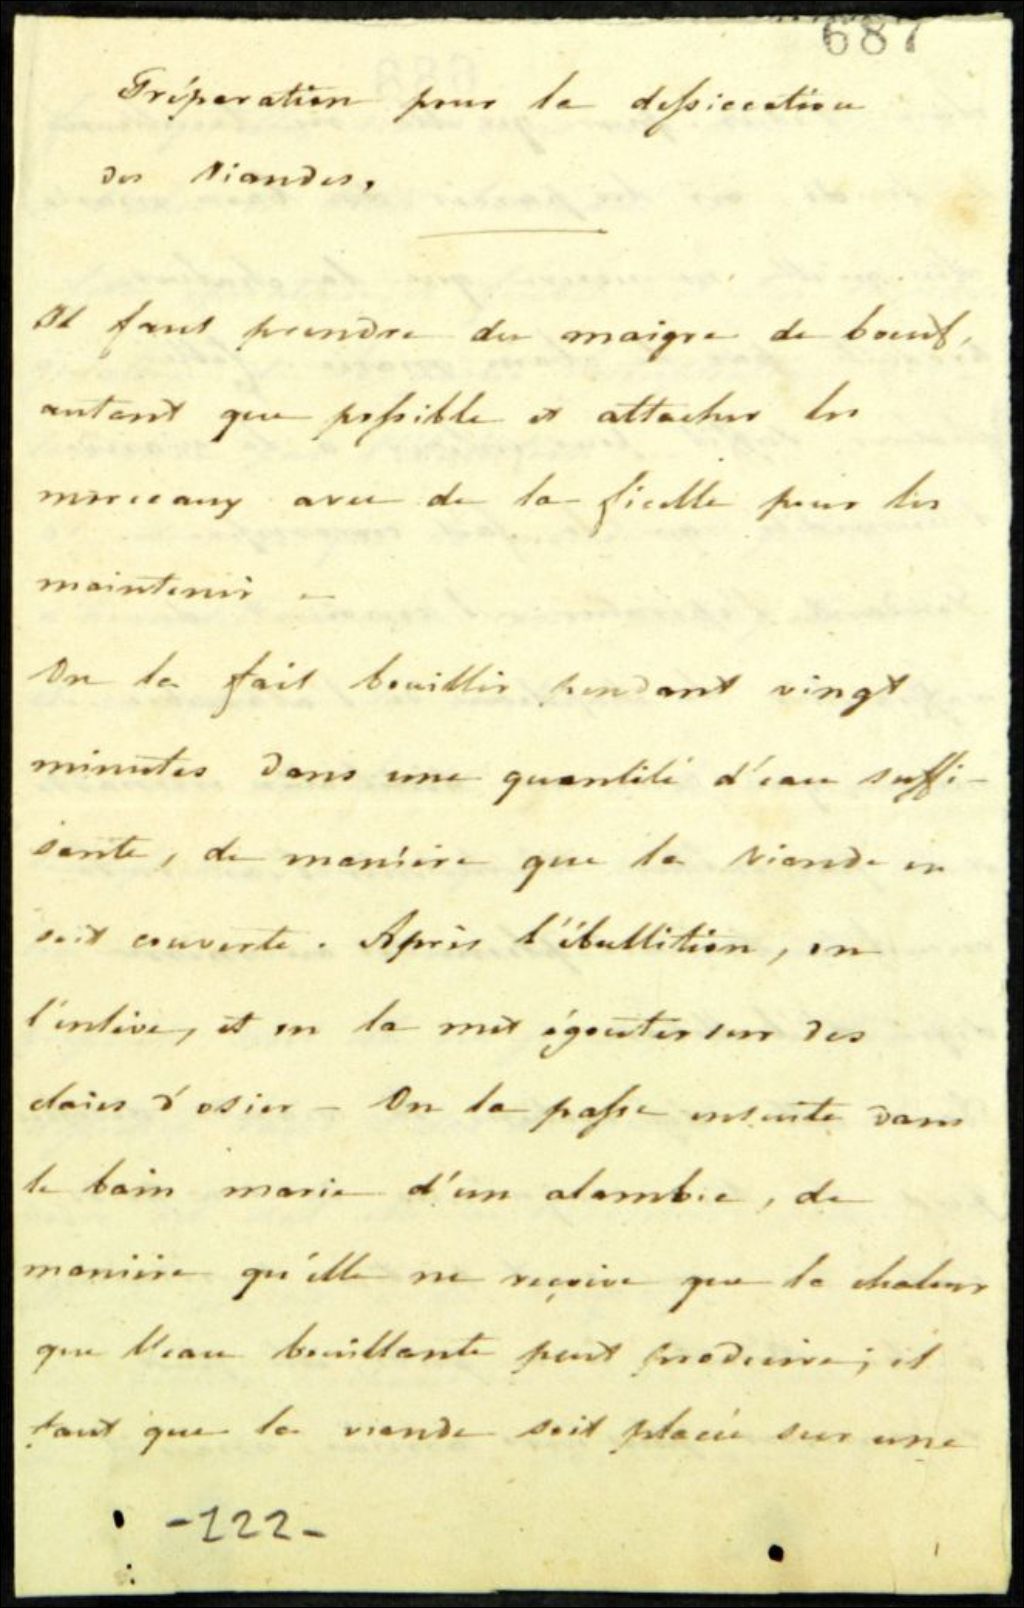 687
Préparation pour la dessiccation
des Viandes.
Il faut prendre du maigre de bœuf,
autant que possible et attacher les
morceaux avec de la ficelle pour les
maintenir –
On la fait bouillir pendant vingt
minutes dans une quantité d'eau suffi-
sante, de manière que la viande en
soit couverte. Après l'ébullition, on
l'enlève, et on la met égouter sur des
claies d'osier – On la passe ensuite dans
le bain marie d'un alambic, de
manière qu'elle ne reçoive que la chaleur
que l'eau bouillante peut produire; il
faut que la viande soit placée sur une
-122-